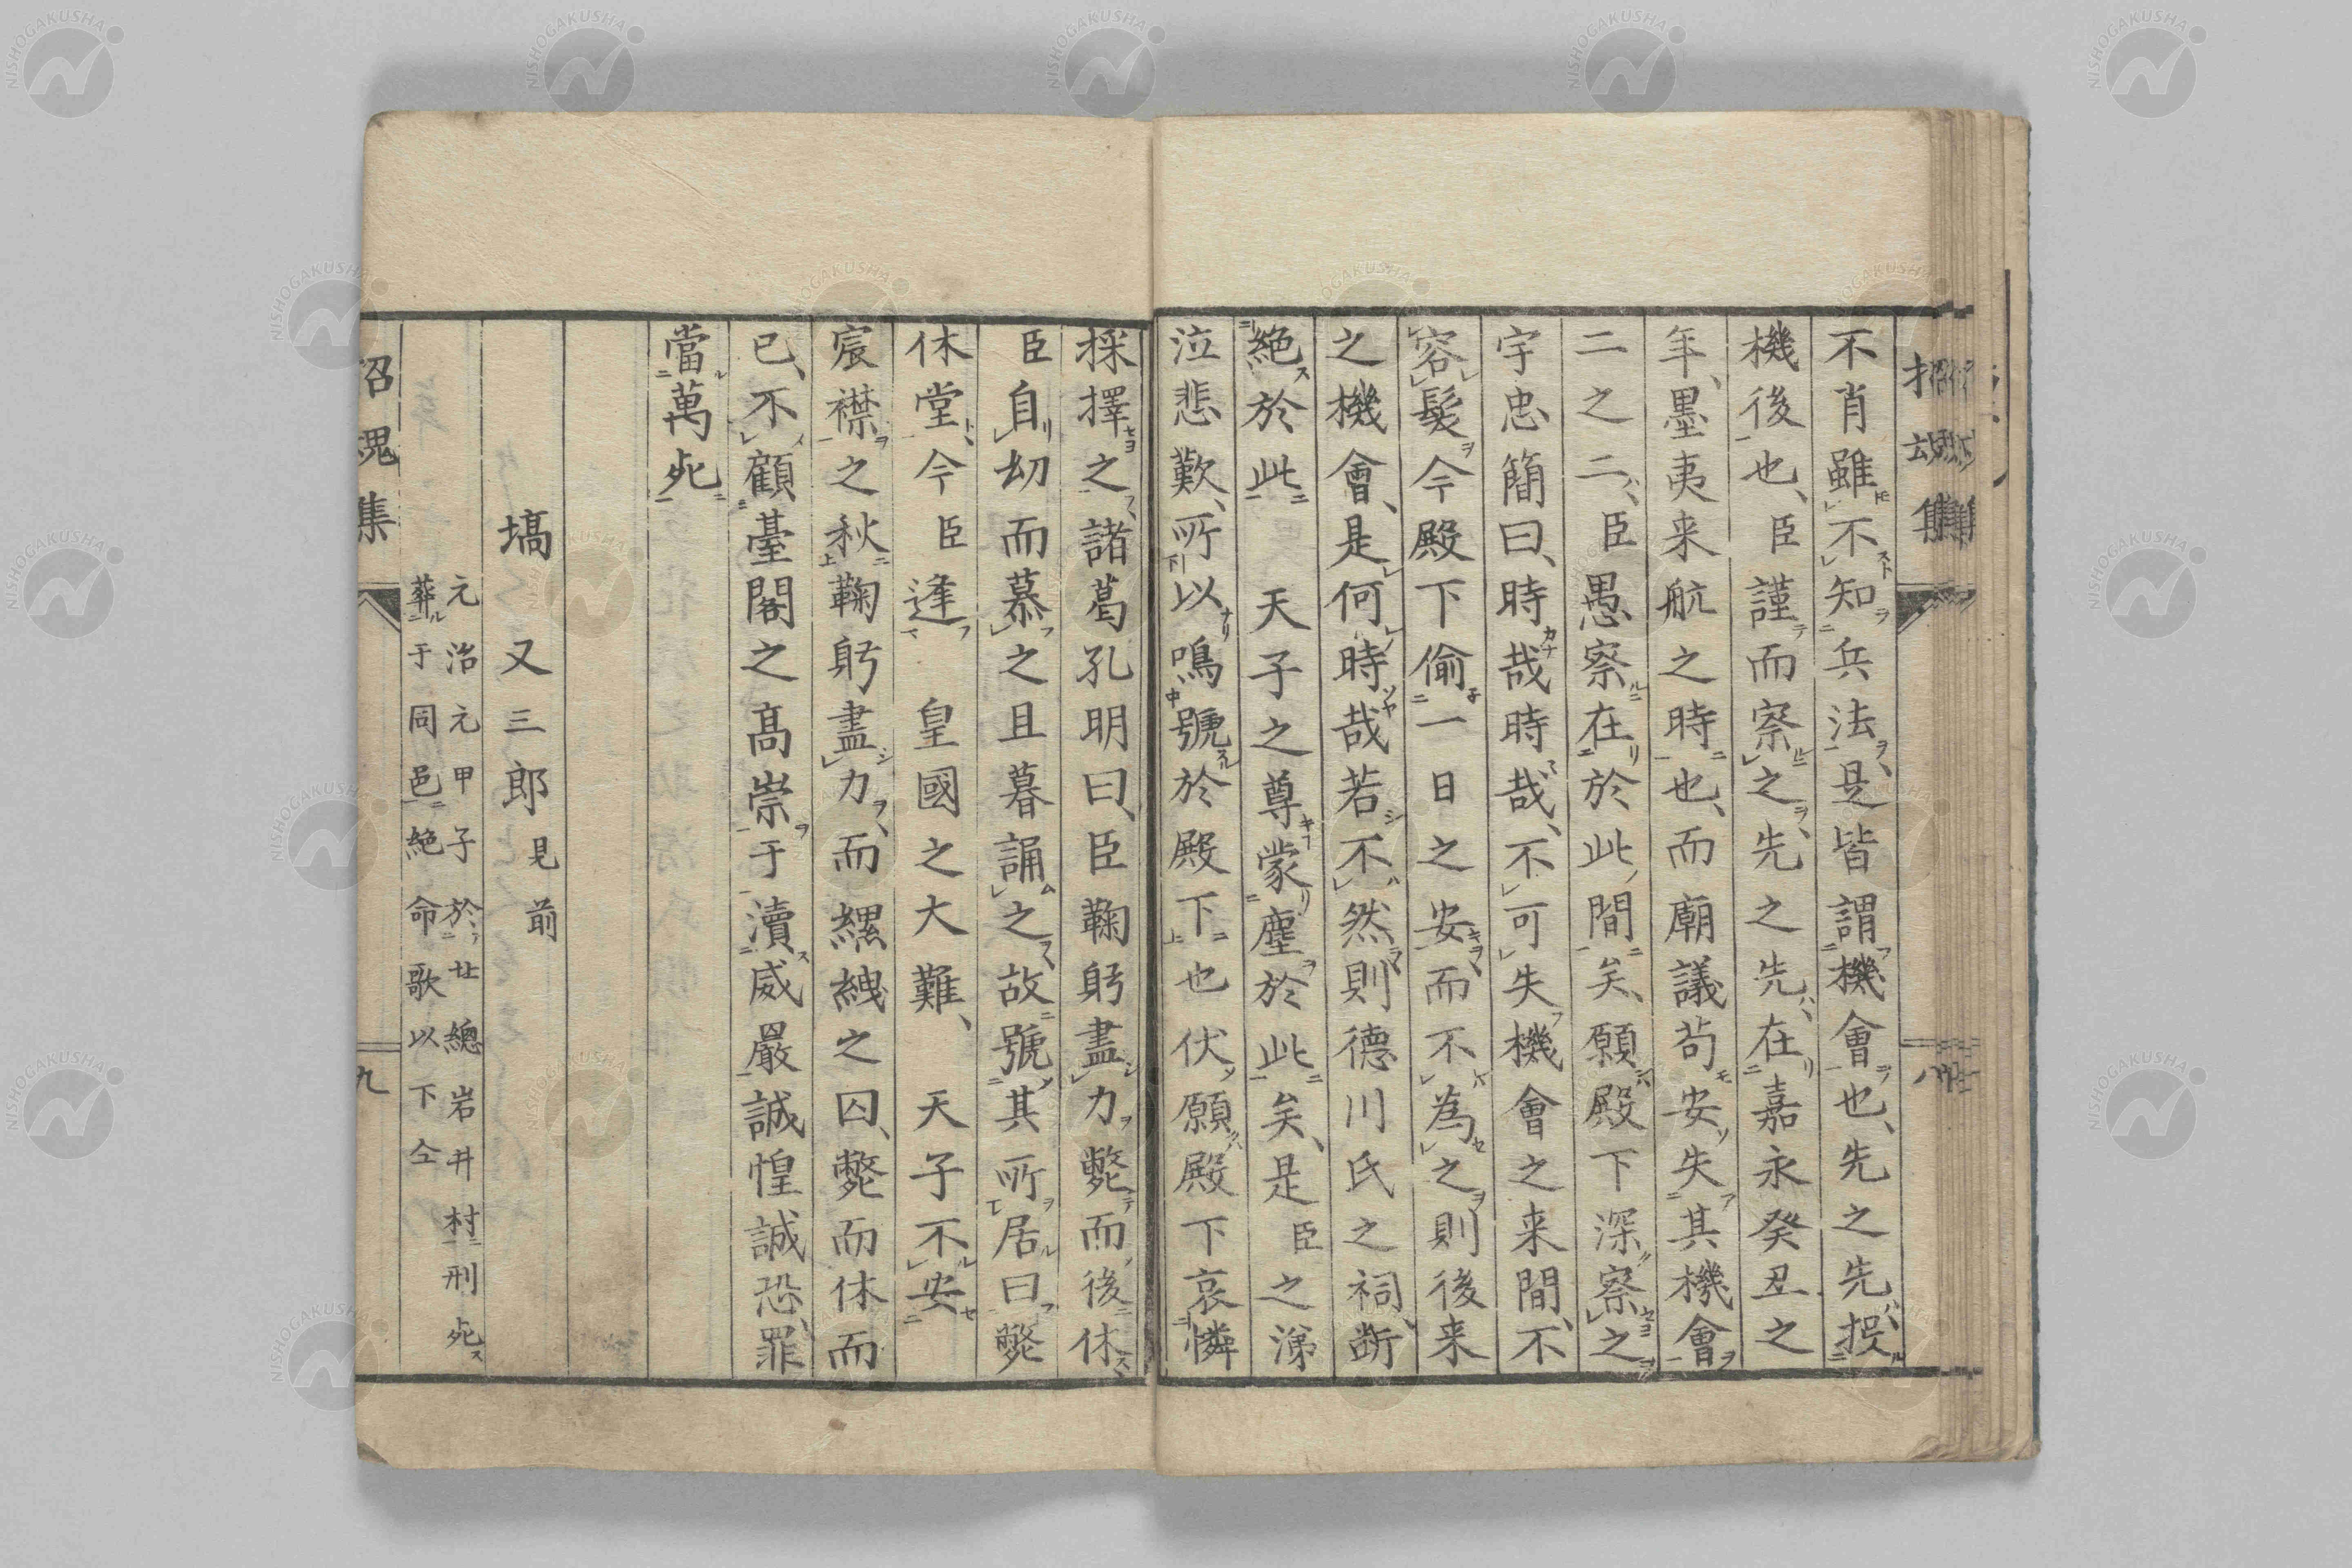 不肖雖不知兵法是皆謂機會也、先之先、投
機後也、臣謹而察之、先之先、在嘉永癸丑之
年、墨夷来航之時也、而廟議苟安失其機會
二之二、臣愚察在於此間矣、願殿下深察之
宇忠簡曰、時哉時哉、不可失機會之来間、不
容髮今殿下偷一日之安、而不為之則後来
之機會、是何時哉若不然則德川氏之祠、断
絶於此 天子之尊蒙塵於此矣、是臣之涕
泣悲歎、所以鳴號於殿下也伏願殿下哀憐
採擇之、諸葛孔明曰、臣鞠躬盡力斃而後休、
臣自幼而慕之且暮誦之、故號其所居曰斃
休堂、今臣逢 皇國之大難、 天子不安
宸襟之秋鞠躬盡力、而縲絏之囚、斃而休而
已、不顧臺閣之高崇于瀆威嚴誠惶誠恐、罪
當萬死
塙又三郎見前
元治元甲子於廿總岩井村刑死
葬于同邑絶命歌以下仝
招魂集
九